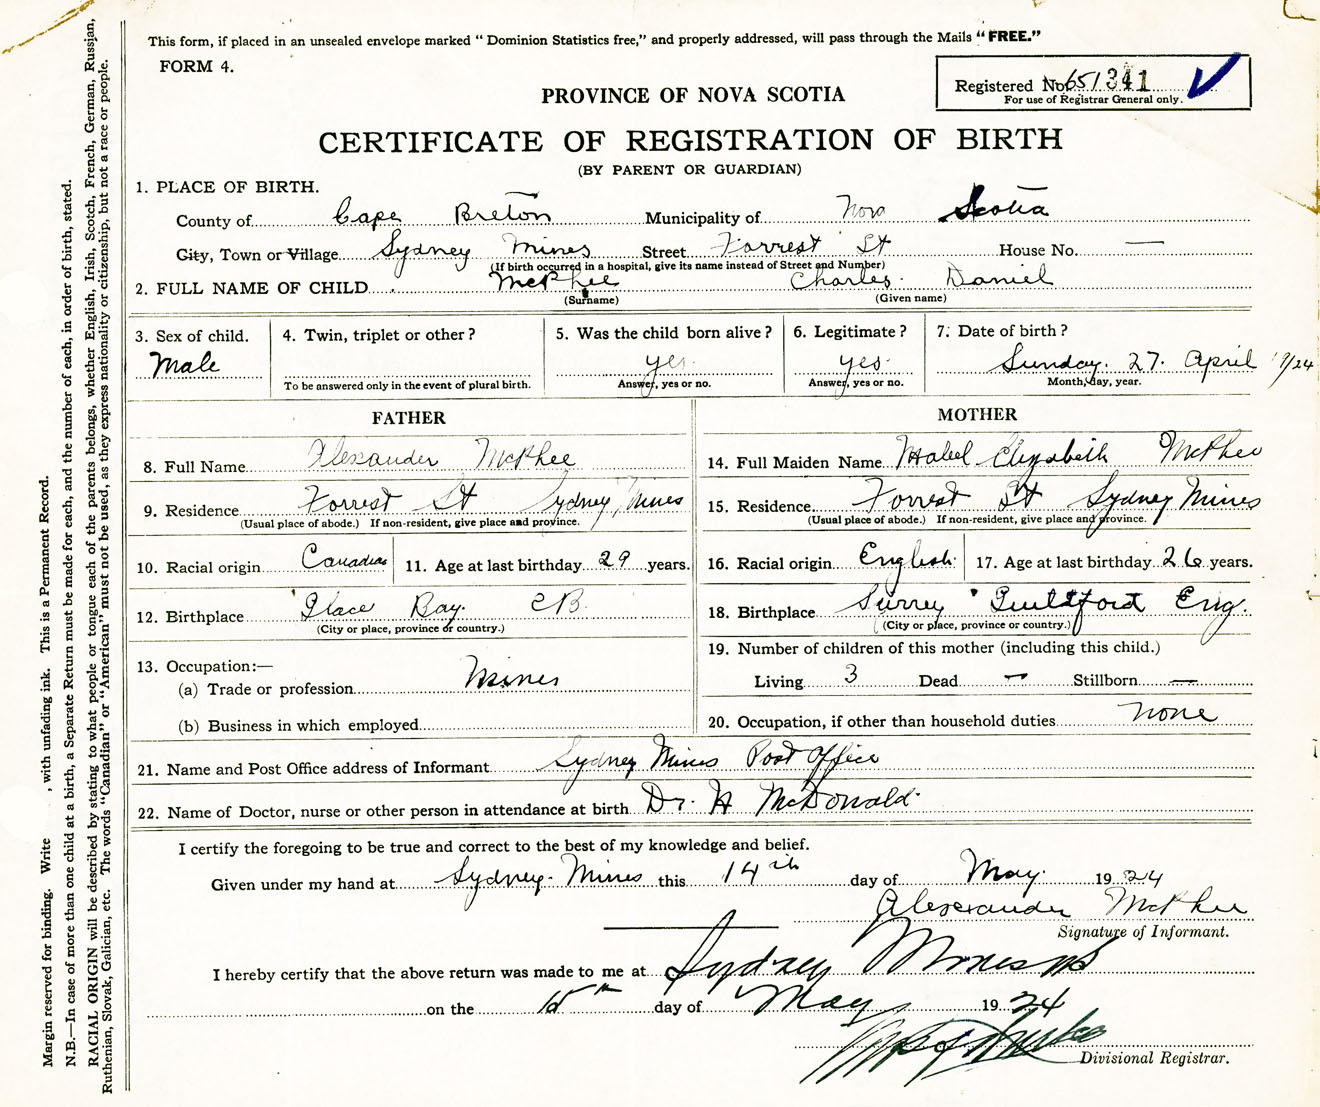 This form, if placed in an unsealed envelope marked "Dominion Statistics free," and properly addressed, will pass through the Mails "FREE."
FORM 4.
Registered No. 651341
For use of Registrar General only.
PROVINCE OF NOVA SCOTIA
CERTIFICATE OF REGISTRATION OF BIRTH
(BY PARENT OR GUARDIAN)
1. PLACE OF BIRTH.
County of Cape Breton Municipality of Nova Scotia
City, Town or Village Sydney Mines Street Forrest St House No. —
(If birth occurred in a hospital, give its name instead of Street and Number)
2. FULL NAME OF CHILD McPhee Charles Daniel
(Surname) (Given name)
3. Sex of child. 4. Twin, triplet or other? 5. Was the child born alive? 6. Legitimate? 7. Date of birth?
Male yes yes Sunday. 27. April 1924
To be answered only in the event of plural birth. Answer, yes or no. Answer, yes or no. Month, day, year.
FATHER MOTHER
8. Full Name Alexander McPhee 14. Full Maiden Name Mabel Elizabeth McPhee
9. Residence Forrest St Sydney Mines 15. Residence Forrest St Sydney Mines
(Usual place of abode.) If non-resident, give place and province. (Usual place of abode.) If non-resident, give place and province.
10. Racial origin Canadian 11. Age at last birthday 29 years. 16. Racial origin English 17. Age at last birthday 26 years.
12. Birthplace Glace Bay. C B. 18. Birthplace Surrey Guildford Eng.
(City or place, province or country.) (City or place, province or country.)
13. Occupation:— 19. Number of children of this mother (including this child.)
(a) Trade or profession Miner Living 3 Dead — Stillborn —
(b) Business in which employed 20. Occupation, if other than household duties none
21. Name and Post Office address of Informant Sydney Mines Post Office
22. Name of Doctor, nurse or other person in attendance at birth Dr. H McDonald
I certify the foregoing to be true and correct to the best of my knowledge and belief.
Given under my hand at Sydney Mines this 14th day of May 1924
Alexander McPhee
Signature of Informant.
I hereby certify that the above return was made to me at Sydney Mines NS
on the 15th day of May 1924
Divisional Registrar.
Margin reserved for binding. Write , with unfading ink. This is a Permanent Record.
N.B.—In case of more than one child at a birth, a Separate Return must be made for each, and the number of each, in order of birth, stated.
RACIAL ORIGIN will be described by stating to what people or tongue each of the parents belongs, whether English, Irish, Scotch, French, German, Russian,
Ruthenian, Slovak, Galician, etc. The words "Canadian" or "American" must not be used, as they express nationality or citizenship, but not a race or people.